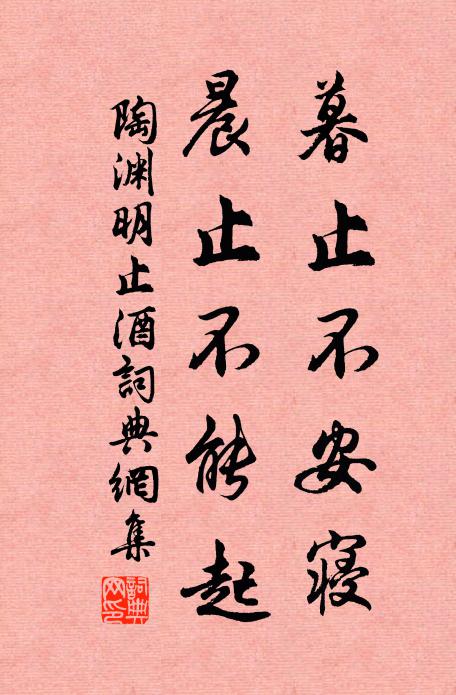 暮止不安寢
晨止不能起
陶渊明止酒詞典網集
詞典网印